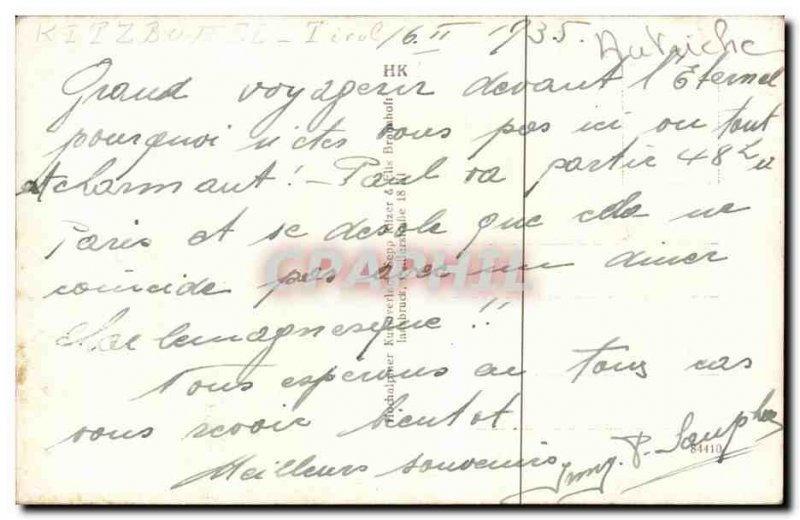 KITZBUHEL - Tirol 16 II 1935. Autriche
HK
Grand voyageur devant l'Eternel
pourquoi n'etes vous pas ici ou tout
est charmant! - Paul va partir 48h a
Paris et se desole que cela ne
coincide pas avec un diner
charlemagnesque!!
Nous esperons en tous cas
vous revoir bientot.
Meilleurs souvenirs
Hochalpiner Kunstverlag Sepp & Elis Bramhofer
Innsbruck, 18
84410
CPAPHIL